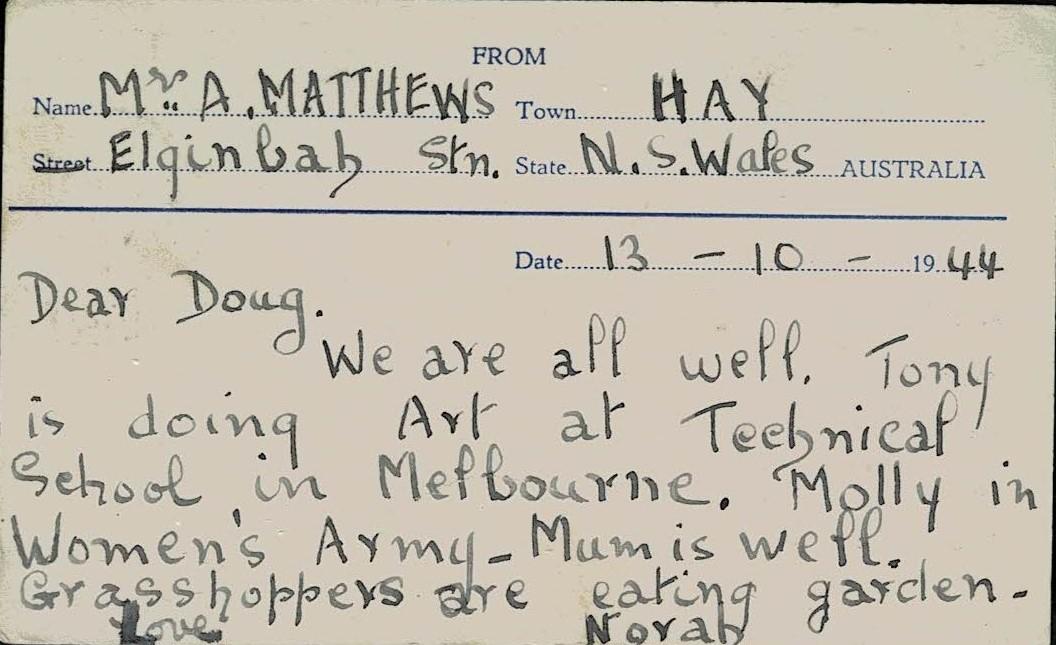 FROM
Name Mr. A. MATTHEWS Town HAY
Street Elginbah Stn. State N.S.Wales AUSTRALIA
Date 13 - 10 - 1944
Dear Doug.
We are all well. Tony
is doing Art at Technical
School in Melbourne. Molly in
Women's Army - Mum is well.
Grasshoppers are eating garden -
Love Norah